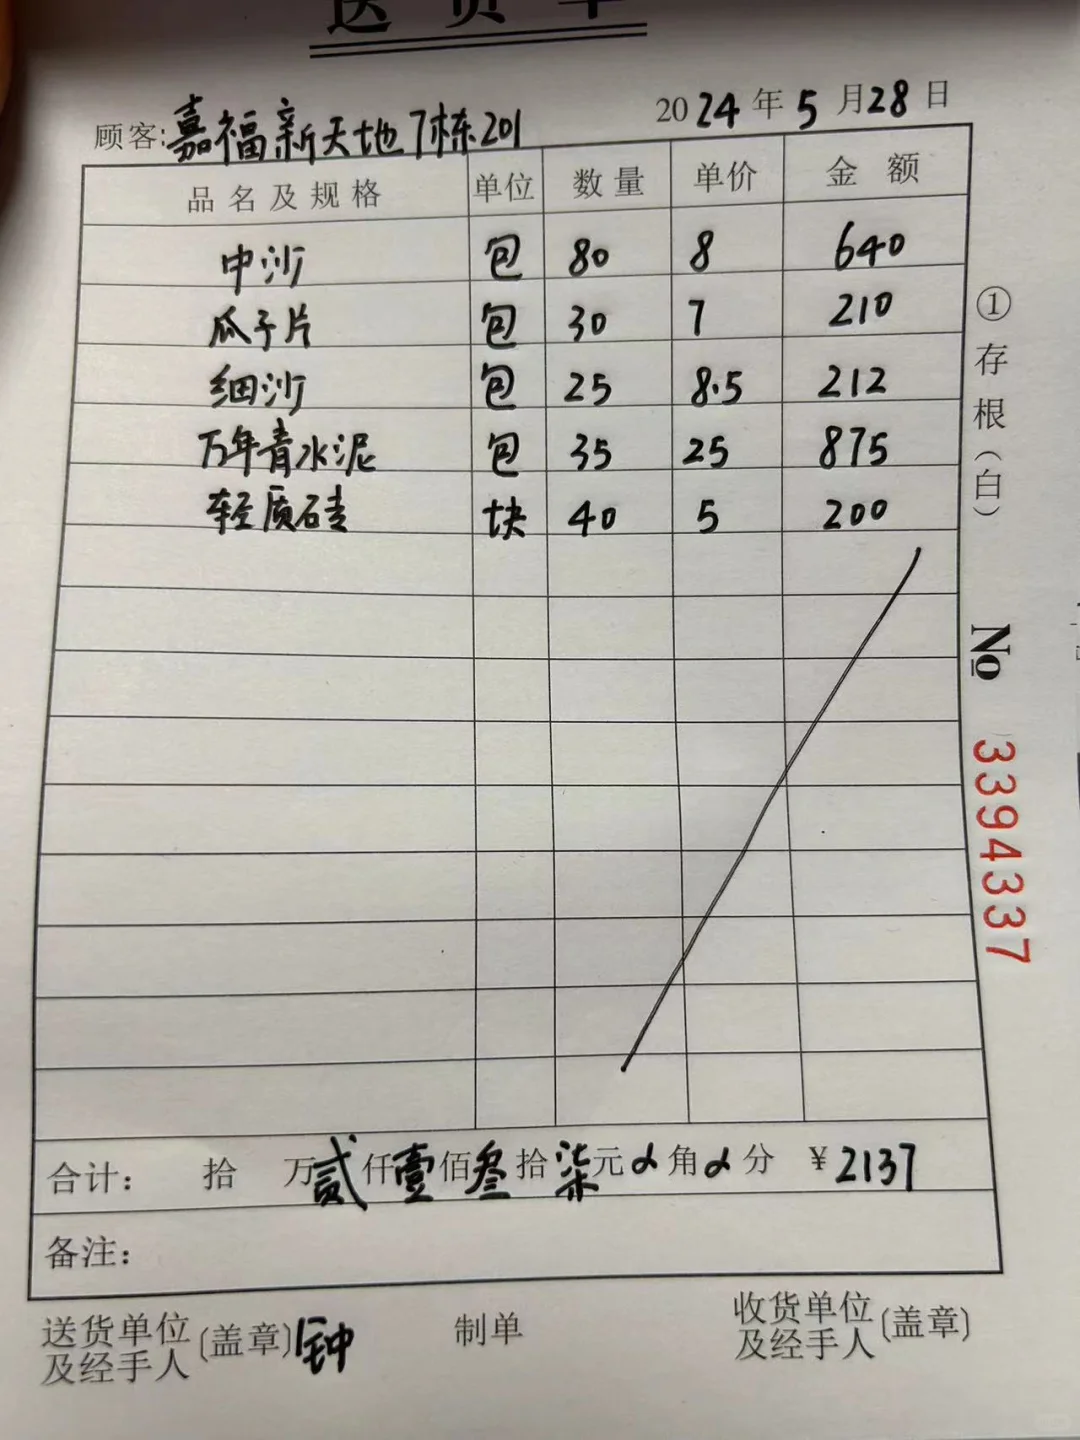 送货单
顾客:嘉福新天地7栋201 2024年5月28日
品名及规格 单位 数量 单价 金额
中沙 包 80 8 640
瓜子片 包 30 7 210
细沙 包 25 8.5 212
万年青水泥 包 35 25 875
轻质砖 块 40 5 200
①存根(白)
№ 3394337
合计: 拾 万贰仟壹佰叁拾柒元 角 分 ¥2137
备注:
送货单位及经手人(盖章) 钟 制单 收货单位及经手人(盖章)